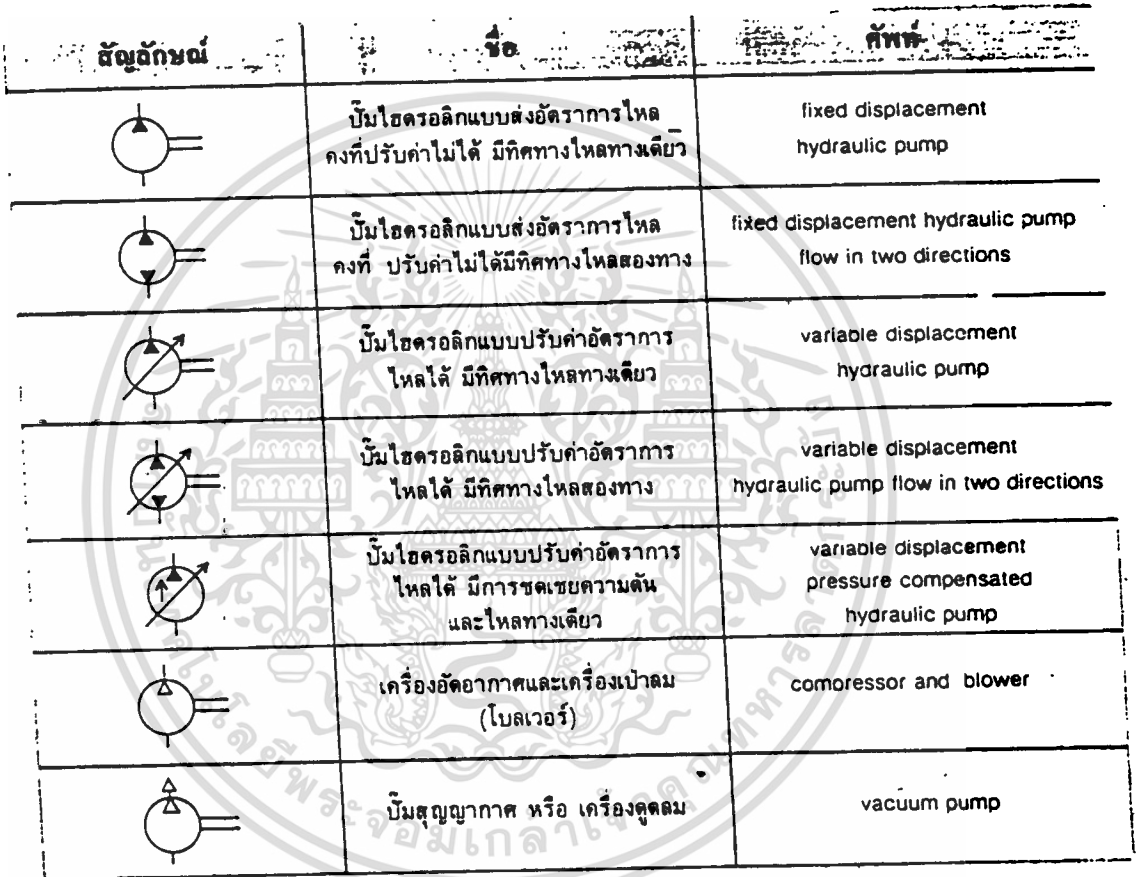 สัญลักษณ์ ชื่อ ศัพท์
ปั๊มไฮดรอลิกแบบส่งอัตราการไหล
คงที่ปรับค่าไม่ได้ มีทิศทางไหลทางเดียว
fixed displacement
hydraulic pump
ปั๊มไฮดรอลิกแบบส่งอัตราการไหล
คงที่ ปรับค่าไม่ได้มีทิศทางไหลสองทาง
fixed displacement hydraulic pump
flow in two directions
ปั๊มไฮดรอลิกแบบปรับค่าอัตราการ
ไหลได้ มีทิศทางไหลทางเดียว
variable displacement
hydraulic pump
ปั๊มไฮดรอลิกแบบปรับค่าอัตราการ
ไหลได้ มีทิศทางไหลสองทาง
variable displacement
hydraulic pump flow in two directions
ปั๊มไฮดรอลิกแบบปรับค่าอัตราการ
ไหลได้ มีการชดเชยความดัน
และไหลทางเดียว
variable displacement
pressure compensated
hydraulic pump
เครื่องอัดอากาศและเครื่องเป่าลม
(โบลเวอร์)
comoressor and blower
ปั๊มสุญญากาศ หรือ เครื่องดูดลม
vacuum pump